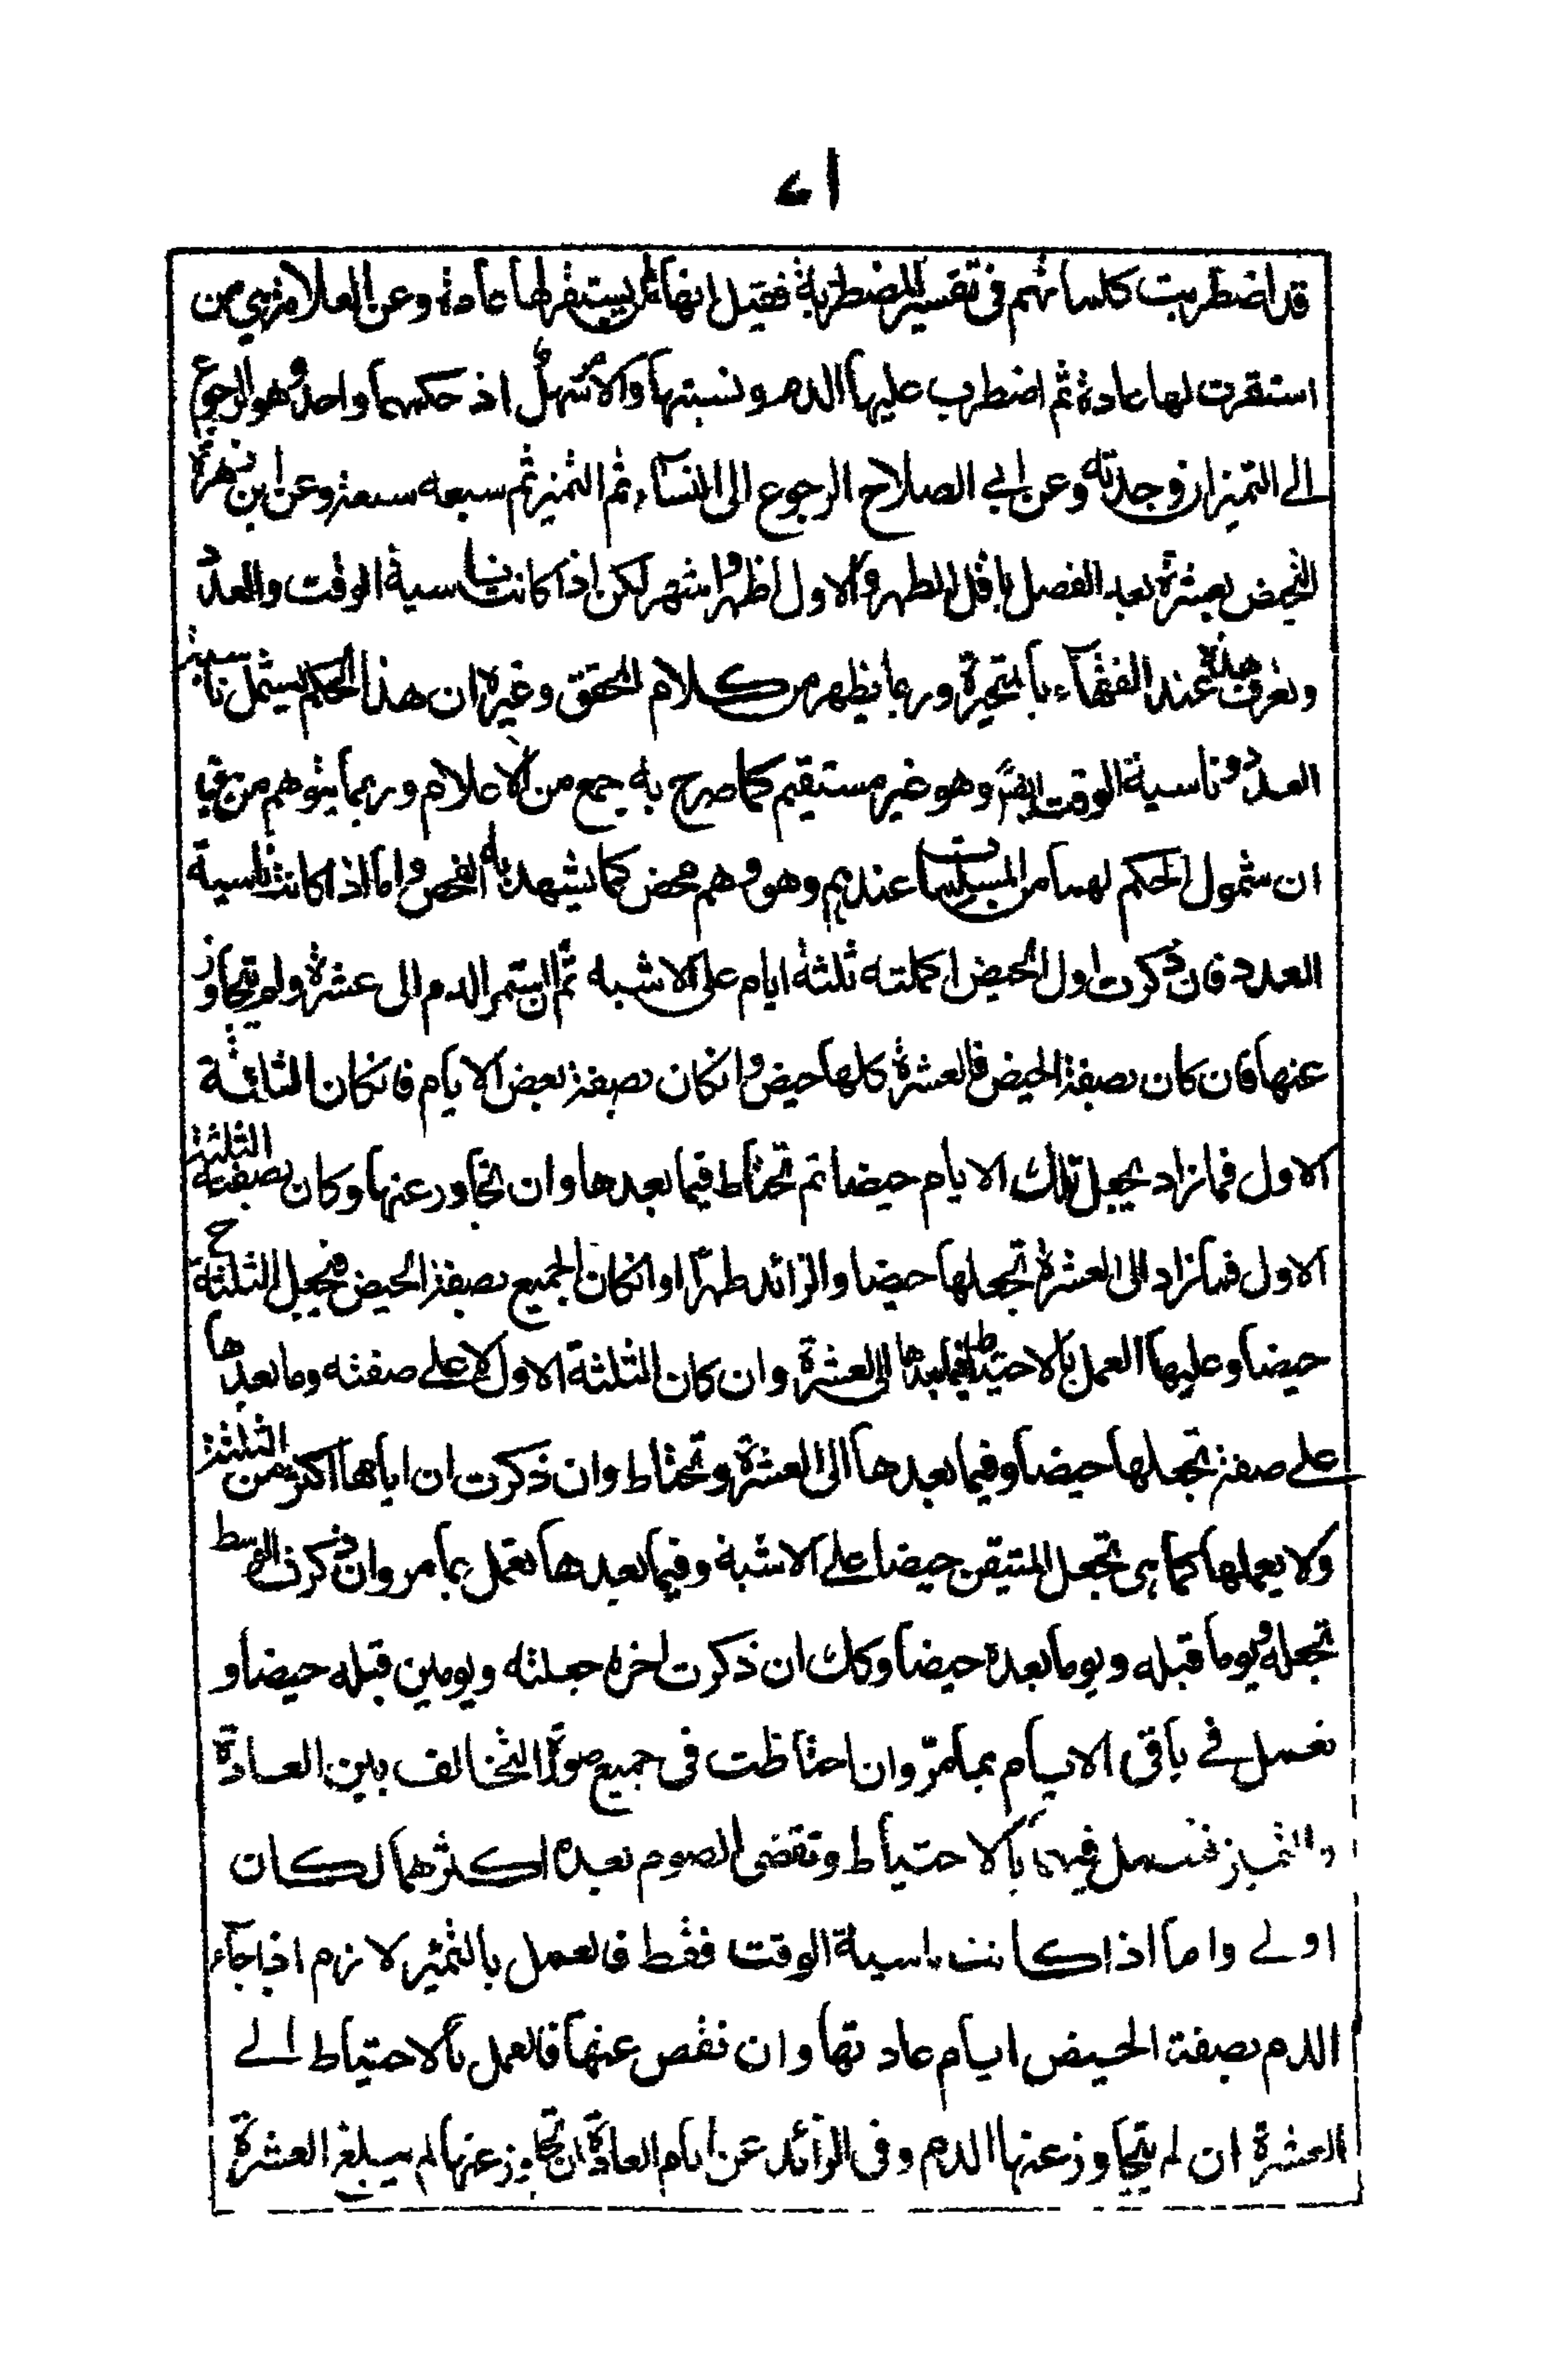 قد اضطربت كلماتهم في تفسير المضطربة فقيل انها لم يستقر لها عادة وعن العلامة هي من
استقرت لها عادة ثم اضطرب عليها الدم ونسبتها والامر سهل اذ حكمهما واحد وهو الرجوع
الى التميز ان وجدته وعن ابي الصلاح الرجوع الى النساء ثم التميز ثم سبعه سبعة وعن ابن زهرة
التحيض بعشرة بعد الفصل باقل الطهر والاول اظهر واشهر لكن اذا كانت ناسية الوقت والعدد
وتعرف هذه عند الفقهاء بالمتحيرة وربما يظهر من كلام المحقق وغيره ان هذا الحكم يشمل ناسية
العدد وناسية الوقت ايضا وهو غير مستقيم كما صرح به جمع من الاعلام وربما يتوهم من
ان شمول الحكم لهما من المسلمات عندهم وهو وهم محض كما يشهد به الفحص واما اذا كانت ناسية
العدد فان ذكرت اول الحيض اكملته ثلثة ايام على الاشبه ثم ان استمر الدم الى عشرة ولم يتجاوز
عنها فان كان بصفة الحيض فالعشرة كلها حيض وانكان بصفة بعض الايام فانكان الثلثة
الاول فما زاد يجعل تلك الايام حيضا ثم تحتاط فيما بعدها وان تجاوز عنها وكان بصفته الثلثة
الاول فما زاد الى العشرة تجعلها حيضا والزائد طهرا وانكان الجميع بصفة الحيض فح يجعل الثلثة
حيضا وعليها العمل بالاحتياط فيما بعدها الى العشرة وان كان الثلثة الاول لا على صفته وما بعدها
على صفة تجعلها حيضا وفيما بعدها الى العشرة وتحتاط وان ذكرت ان ايامها اكثر من الثلثة
ولا يعملها كما هي تجعل المتيقن حيضا على الاشبه وفيما بعدها تعمل بما مر وان ذكرت الوسط
تجعله ويوما قبله ويوما بعده حيضا وكك ان ذكرت اخره جعلته ويومين قبله حيضا و
تعمل في باقي الايام بما مرّ وان احتاظت في جميع صورة التخالف بين العادة
والتميز فتعمل فيهما بالاحتياط وتقضي الصوم بعده اكثرهما لكان
اولى واما اذا كانت ناسية الوقت فقط فالعمل بالتميز لازم اذا جاء
الدم بصفة الحيض ايام عادتها وان نقص عنها فالعمل بالاحتياط الى
العشرة ان لم يتجاوز عنها الدم وفي الزائد عن ايام العادة ان تجاوز عنها لم يبلغ العشرة